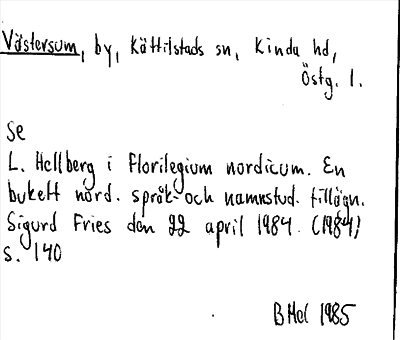 Västersum, by, Kättilstads sn, Kinda hd,
Östg. l.
Se
L. Hellberg i Florilegium nordicum. En
bukett nord. språk- och namnstud. tillägn.
Sigurd Fries den 22 april 1984. (1984)
s. 140
BHel 1985